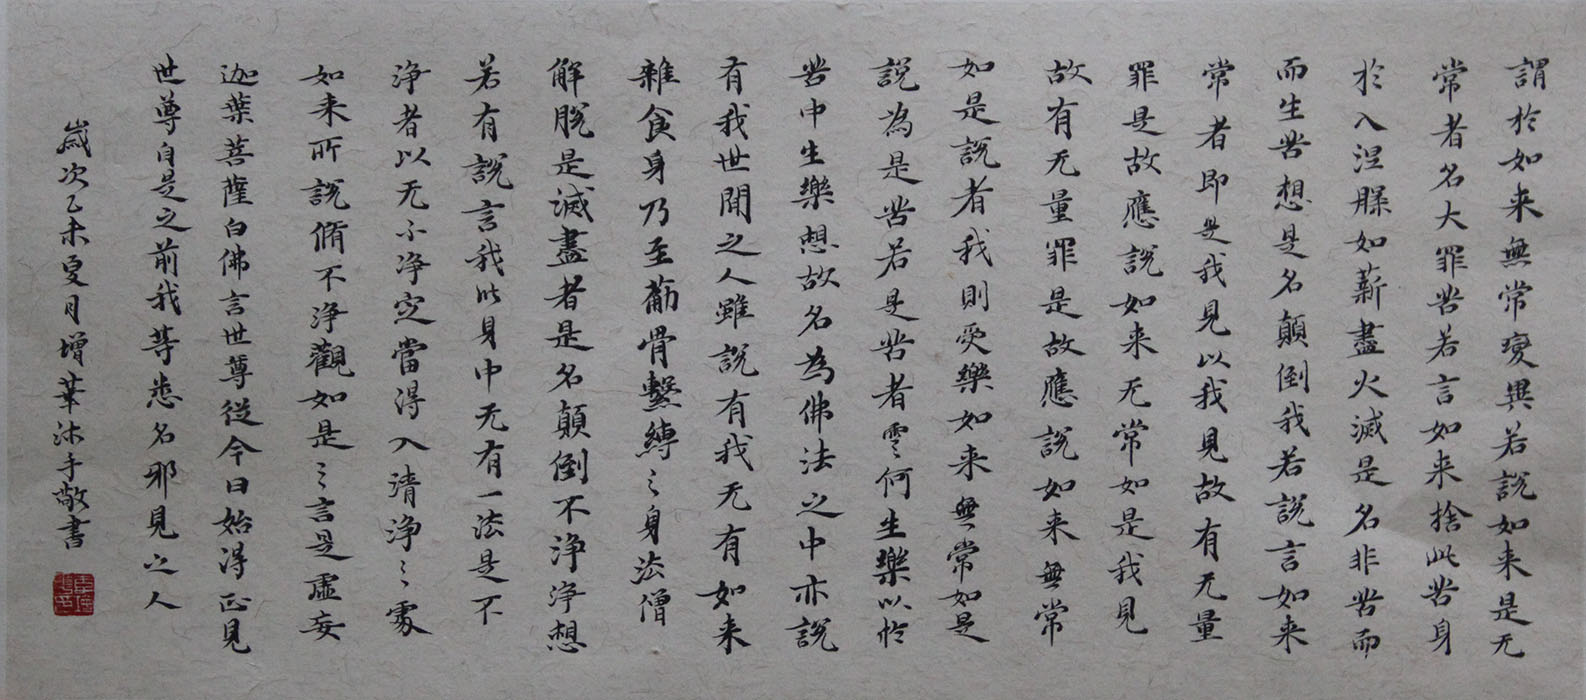 謂於如来無常變異若說如来是无
常者名大罪苦若言如来捨此苦身
於入涅膜如薪盡火滅是名非苦而
而生苦想是名顛倒我若說言如来
常者即是我見以我見故有无量
罪是故應說如来无常如是我見
故有无量罪是故應說如来無常
如是說者我則受樂如来無常如是
說為是苦若是苦者雲何生樂以於
苦中生樂想故名為佛法之中亦說
有我世間之人雖說有我无有如来
雜食身乃至筋骨繫縛之身法僧
解脫是滅盡者是名顛倒不淨淨想
若有說言我此身中无有一法是不
淨者以无不淨定當得入清淨之處
如来所說脩不淨觀如是之言是虛妄
迦葉菩薩白佛言世尊從今日始得正見
世尊自是之前我等悉名邪見之人
歲次乙未夏月增華沐手敬書